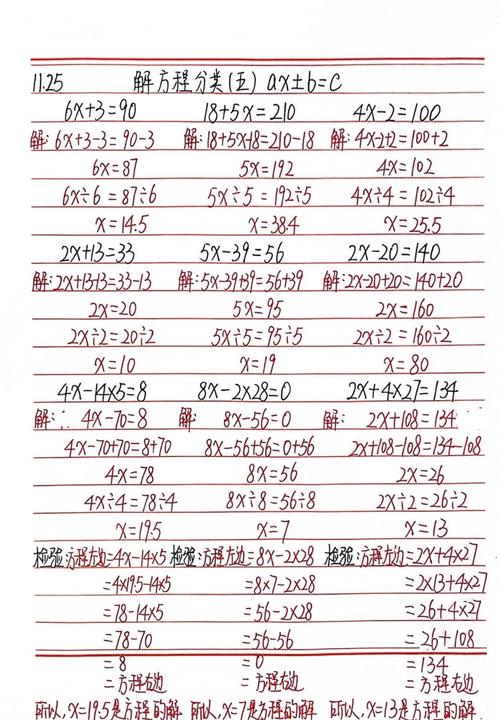 11.25 解方程分类(五) ax±b=c
6x+3=90 18+5x=210 4x-2=100
解:6x+3-3=90-3 解:18+5x-18=210-18 解:4x-2+2=100+2
6x=87 5x=192 4x=102
6x÷6=87÷6 5x÷5=192÷5 4x÷4=102÷4
x=14.5 x=38.4 x=25.5
2x+13=33 5x-39=56 2x-20=140
解:2x+13-13=33-13 解:5x-39+39=56+39 解:2x-20+20=140+20
2x=20 5x=95 2x=160
2x÷2=20÷2 5x÷5=95÷5 2x÷2=160÷2
x=10 x=19 x=80
4x-14x5=8 8x-2x28=0 2x+4x27=134
解: 4x-70=8 解: 8x-56=0 解: 2x+108=134
4x-70+70=8+70 8x-56+56=0+56 2x+108-108=134-108
4x=78 8x=56 2x=26
4x÷4=78÷4 8x÷8=56÷8 2x÷2=26÷2
x=19.5 x=7 x=13
检验:方程左边=4x-14x5 检验:方程左边=8x-2x28 检验:方程左边=2x+4x27
=4x19.5-14x5 =8x7-2x28 =2x13+4x27
=78-14x5 =56-2x28 =26+4x27
=78-70 =56-56 =26+108
=8 =0 =134
=方程右边 =方程右边 =方程右边
所以,x=19.5是方程的解 所以,x=7是方程的解 所以,x=13是方程的解